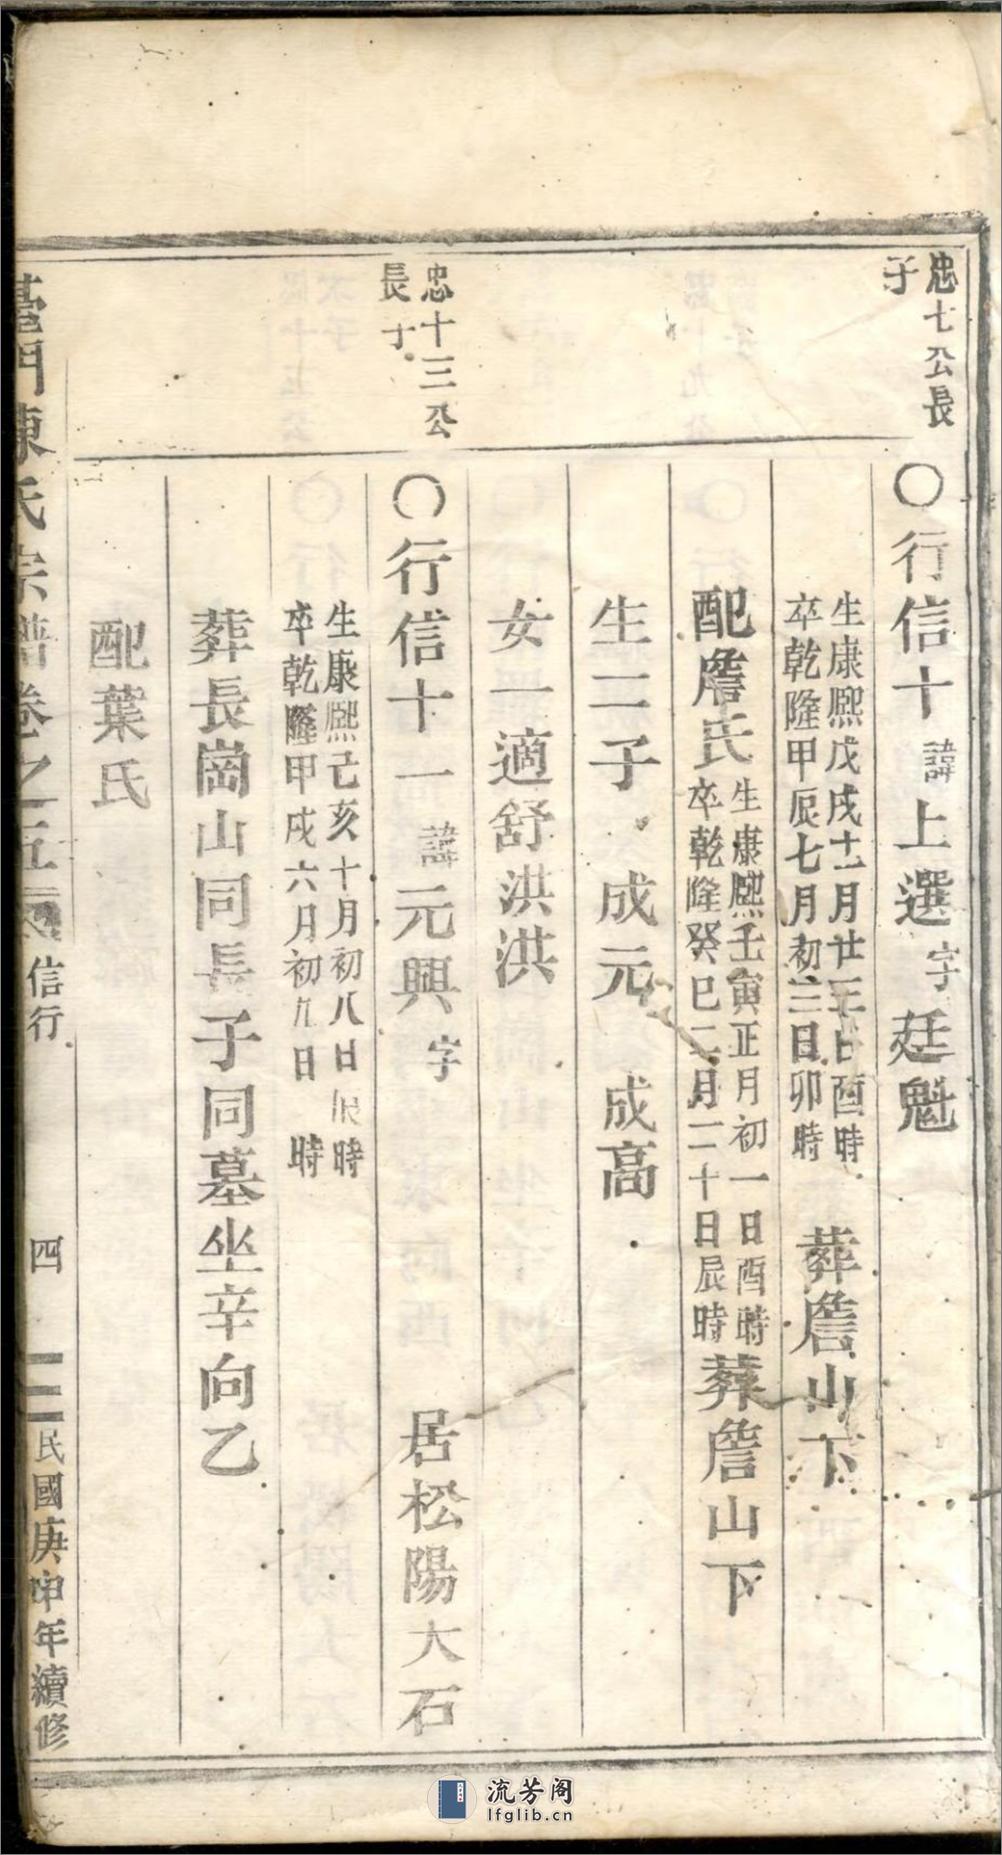 忠七公長
子
〇行信十諱上選字廷魁
生康熙戊戌十一月廿三日酉時
卒乾隆甲辰七月初三日卯時
葬詹山下
配詹氏
生康熙壬寅正月初一日酉時
卒乾隆癸巳二月二十日辰時
葬詹山下
生二子 成元 成高
女一適舒洪洪
忠十三公
長子
〇行信十一諱元興字 居松陽大石
生康熙己亥十月初八日辰時
卒乾隆甲戌六月初九日 時
葬長崗山同長子同墓坐辛向乙
配葉氏
臺門陳氏宗譜卷之五 信行 四 民國庚申年續修
流芳阁
lfglib.cn